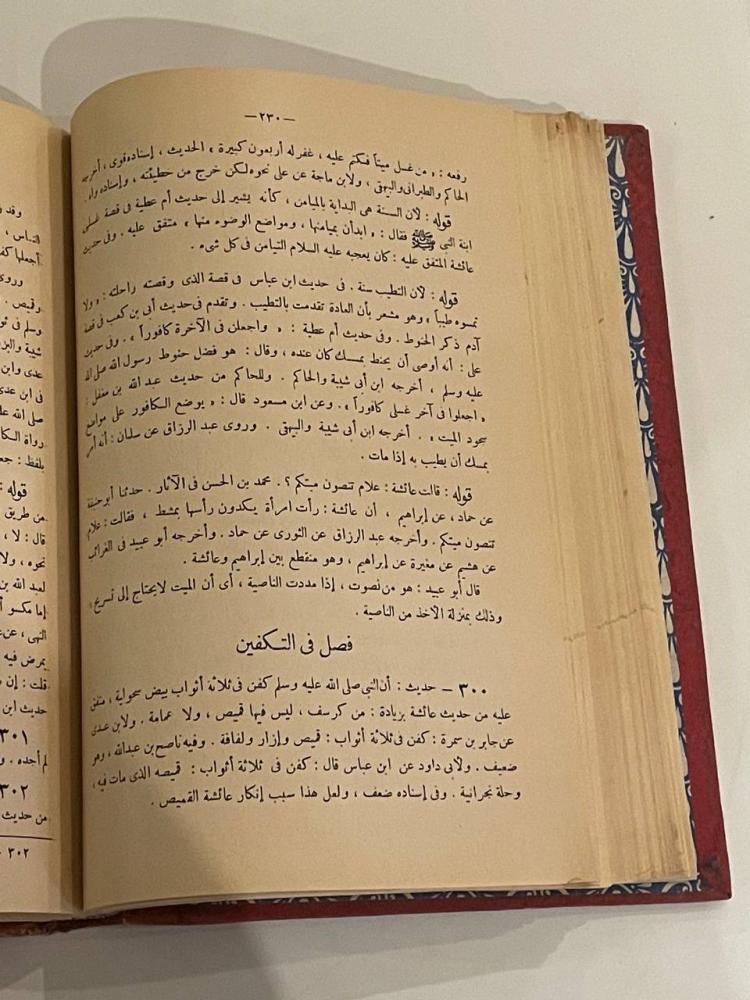 —٢٣٠—
رفعه : « من غسل ميتاً فكتم عليه ، غفر له أربعون كبيرة » الحديث ، إسناده قوى ، أخرجه
الحاكم والطبرانى والبيهقى ، ولابن ماجة عن على نحوه لكن خرج من خطيئته ، وإسناده واه .
قوله : لأن السنة هى البداية بالميامن ، كأنه يشير إلى حديث أم عطية فى قصة غسلى
ابنة النبى ﷺ فقال : « ابدأن بميامنها ، ومواضع الوضوء منها » متفق عليه . وفى حديث
عائشة المتفق عليه : كان يعجبه عليه السلام التيامن فى كل شىء .
قوله : لأن التطيب سنة . فى حديث ابن عباس فى قصة الذى وقصته راحلته : « ولا
تمسوه طيباً » وهو مشعر بأن العادة تقدمت بالتطيب . وتقدم فى حديث أبى بن كعب فى قصة
آدم ذكر الحنوط . وفى حديث أم عطية : « واجعلن فى الآخرة كافوراً » . وفى حديث
على : أنه أوصى أن يحنط بمسك كان عنده ، وقال : هو فضل حنوط رسول الله صلى الله
عليه وسلم ، أخرجه ابن أبى شيبة والحاكم . وللحاكم من حديث عبد الله بن مغفل :
« اجعلوا فى آخر غسلى كافوراً » . وعن ابن مسعود قال : « يوضع الكافور على مواضع
سجود الميت » . أخرجه ابن أبى شيبة والبيهقى . وروى عبد الرزاق عن سلمان : أنه أمر
بمسك أن يطيب به إذا مات .
قوله : قالت عائشة : علام تنصون ميتكم ؟ . محمد بن الحسن فى الآثار . حدثنا أبو حنيفة
عن حماد ، عن إبراهيم ، أن عائشة : رأت امرأة يكدون رأسها بمشط ، فقالت : علام
تنصون ميتكم . وأخرجه عبد الرزاق عن الثورى عن حماد . وأخرجه أبو عبيد فى الغرائب
عن هشيم عن مغيرة عن إبراهيم ، وهو منقطع بين إبراهيم وعائشة .
قال أبو عبيد : هو من نصوت ، إذا مددت الناصية ، أى أن الميت لا يحتاج إلى تسريح ،
وذلك بمنزلة الأخذ من الناصية .
فصل فى التكفين
٣٠٠ — حديث : أن النبى صلى الله عليه وسلم كفن فى ثلاثة أثواب بيض سحولية ، متفق
عليه من حديث عائشة بزيادة : من كرسف ، ليس فيها قميص ، ولا عمامة . ولابن عدى
عن جابر بن سمرة : كفن فى ثلاثة أثواب : قميص وإزار ولفافة . وفيه ناصح بن عبدالله ، وهو
ضعيف . ولأبى داود عن ابن عباس قال : كفن فى ثلاثة أثواب : قميصه الذى مات فيه ،
وحلة نجرانية . وفى إسناده ضعف ، ولعل هذا سبب إنكار عائشة القميص .
وقد
الناس ،
أجعلها كفن
وروى
وقميص .
وسلم فى
شيبة والبز
عدى وابن
فى ابن عدى
صلى الله عل
رواة الكا
بلفظ : جعل
قوله :
من طريق
قال : لا ،
نحوه ، ولا
لعبد الله بن
إما مكسو
النهى ، عن
يمرض فيه
قلت : إن
حديث ابن
٣٠١
لم أجده . و
٣٠٢
من حديث
٣٠٢